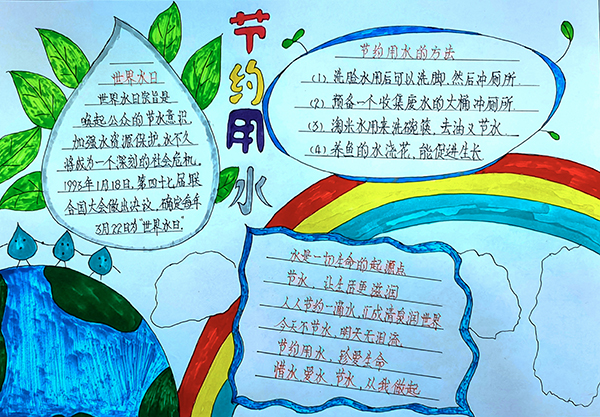 节约用水
世界水日
世界水日宗旨是
唤起公众的节水意识,
加强水资源保护,水不久
将成为一个深刻的社会危机。
1993年1月18日,第四十七届联
合国大会做出决议,确定每年
3月22日为“世界水日”
节约用水的方法
(1)洗脸水用后可以洗脚,然后冲厕所
(2)预备一个收集废水的大桶冲厕所
(3)淘米水用来洗碗筷,去油又节水
(4)养鱼的水浇花,能促进生长
水是一切生命的起源点
节水,让生活更滋润
人人节约一滴水,汇成清泉润世界
今天不节水,明天无泪流
节约用水,珍爱生命
惜水 爱水 节水,从我做起